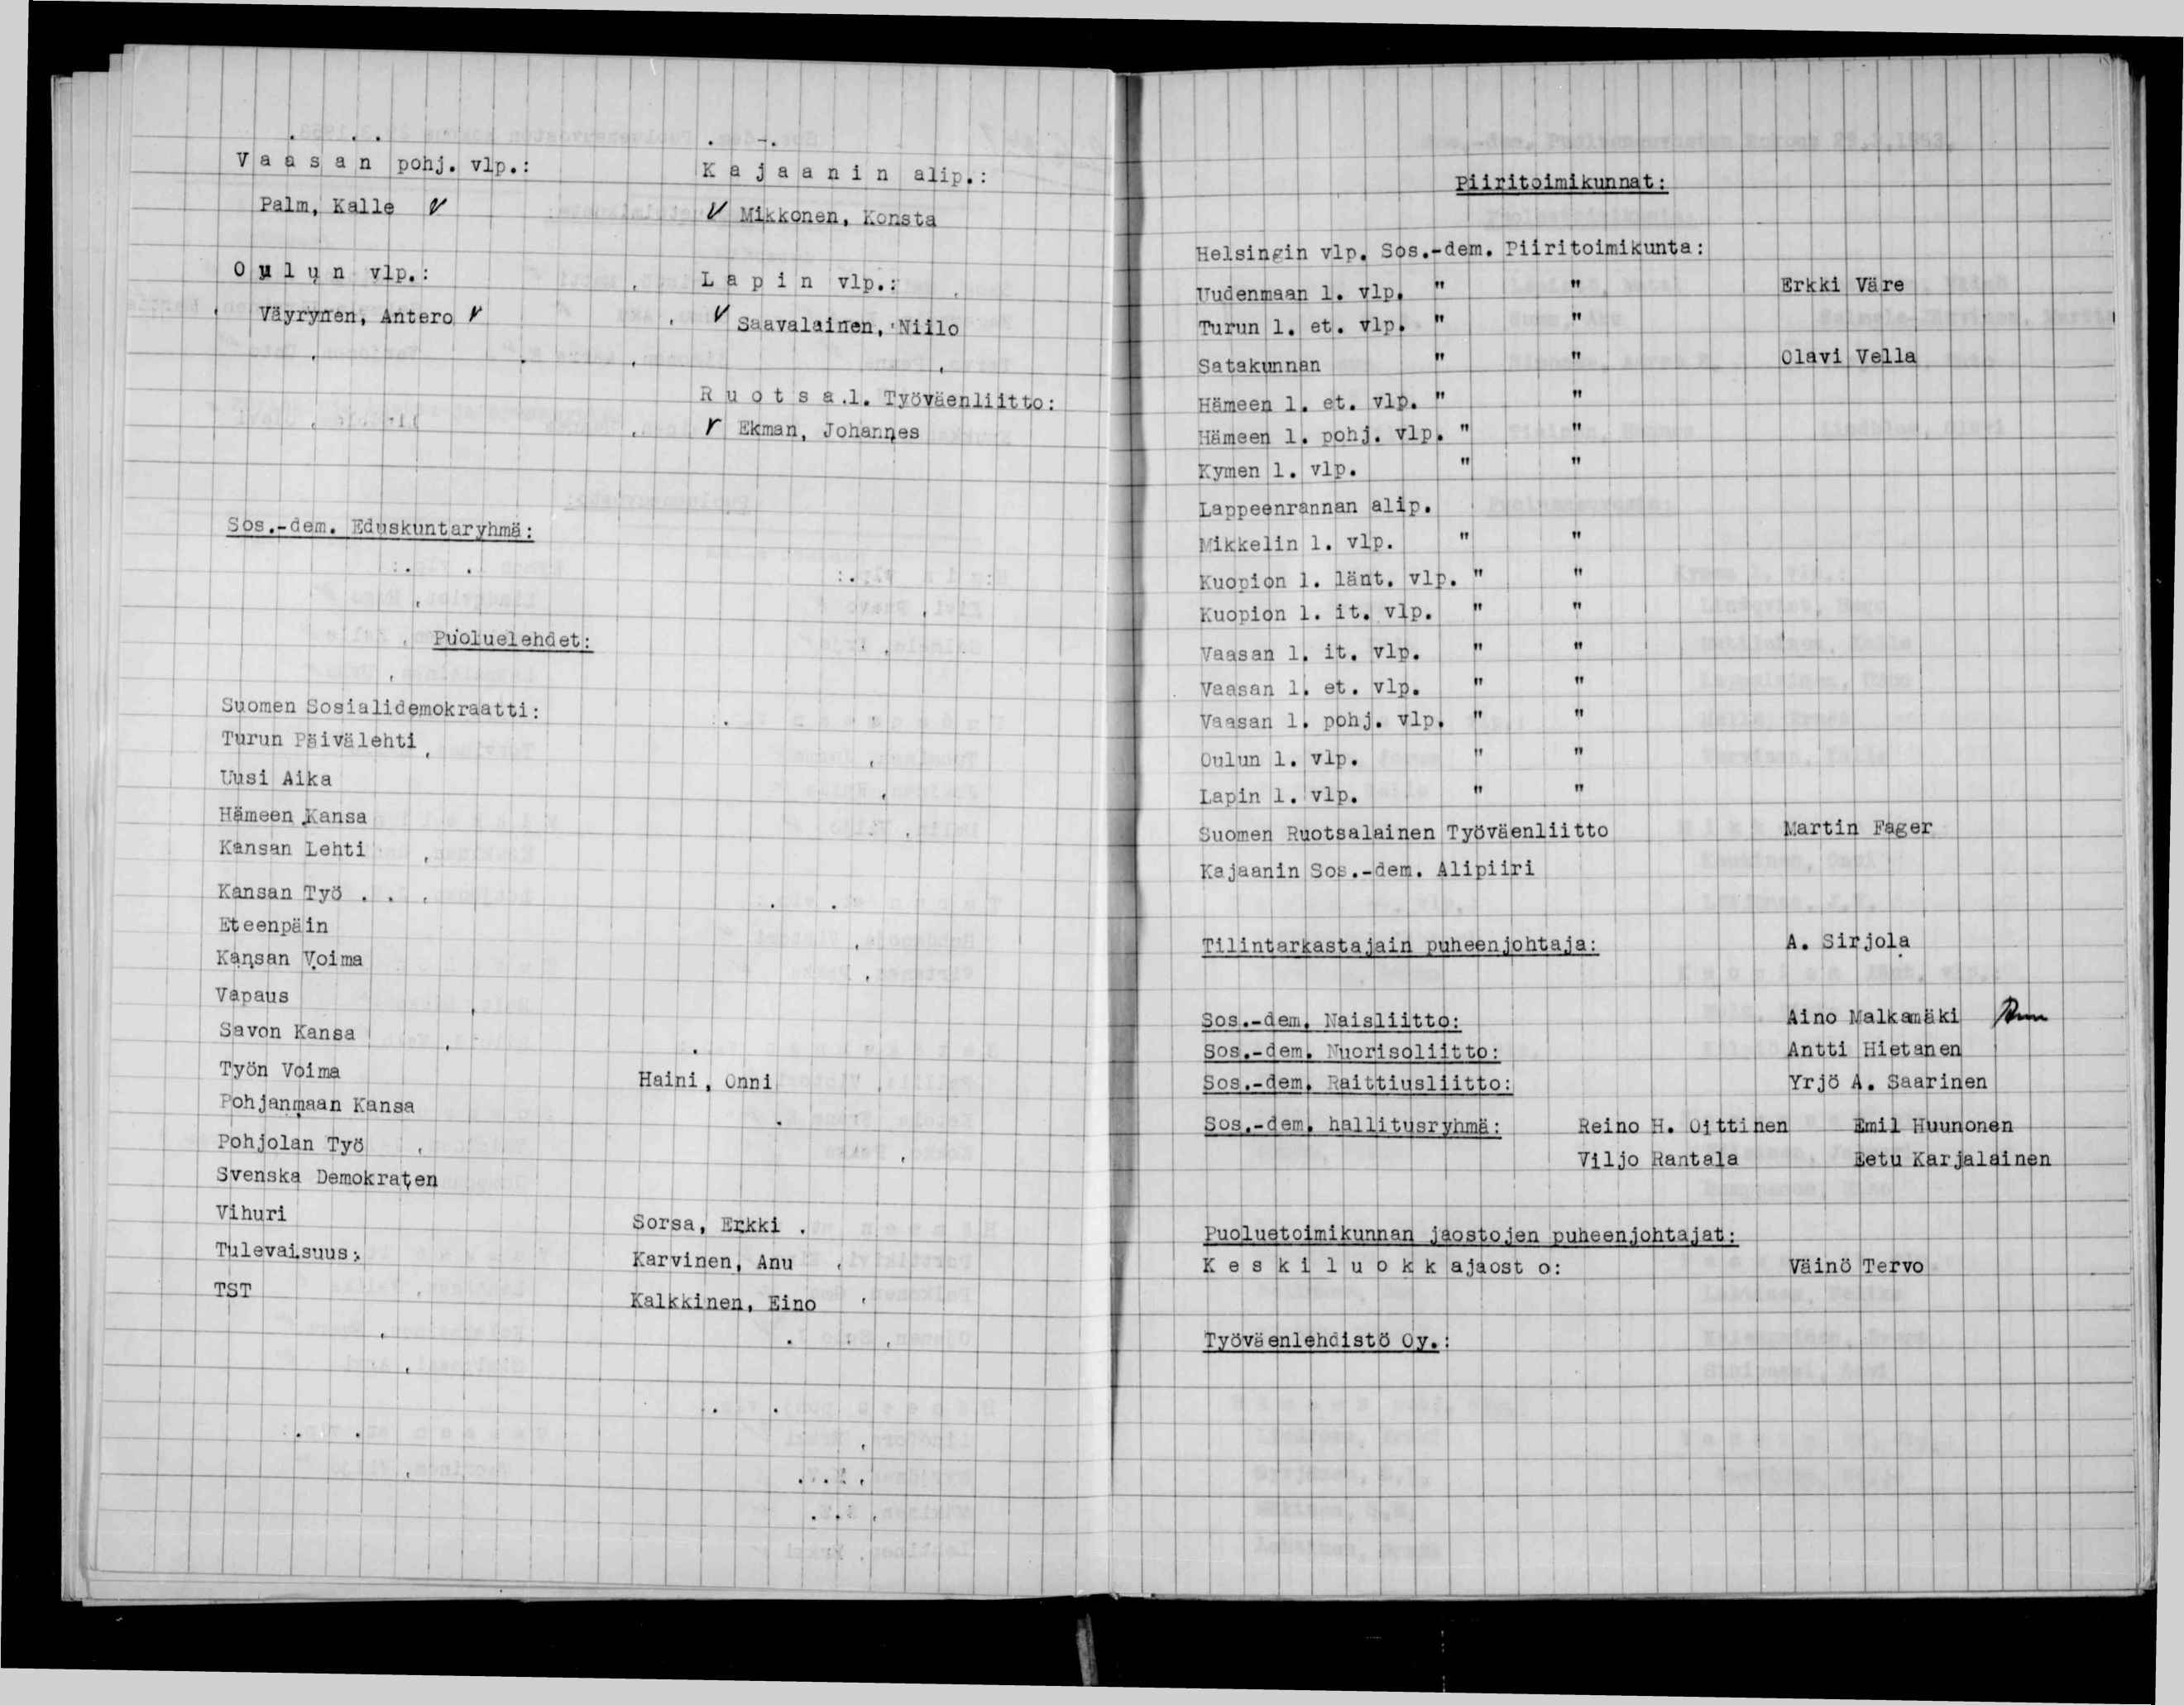 V a a s a n pohj. vlp.:
Palm, Kalle V
O u l u n vlp.:
Väyrynen, Antero V
K a j a a n i n alip.:
V Mikkonen, Konsta
L a p i n vlp.:
V Saavalainen, Niilo
R u o t s a l. Työväenliitto:
V Ekman, Johannes
Sos.-dem. Eduskuntaryhmä:
Puoluelehdet:
Suomen Sosialidemokraatti:
Turun Päivälehti
Uusi Aika
Hämeen Kansa
Kansan Lehti
Kansan Työ
Eteenpäin
Kansan Voima
Vapaus
Savon Kansa
Työn Voima Haini, Onni
Pohjanmaan Kansa
Pohjolan Työ
Svenska Demokraten
Vihuri Sorsa, Erkki
Tulevaisuus: Karvinen, Anu
TST Kalkkinen, Eino
Piiritoimikunnat:
Helsingin vlp. Sos.-dem. Piiritoimikunta:
Uudenmaan l. vlp. " " Erkki Väre
Turun l. et. vlp. " "
Satakunnan " " Olavi Vella
Hämeen l. et. vlp. " "
Hämeen l. pohj. vlp. " "
Kymen l. vlp. " "
Lappeenrannan alip.
Mikkelin l. vlp. " "
Kuopion l. länt. vlp. " "
Kuopion l. it. vlp. " "
Vaasan l. it. vlp. " "
Vaasan l. et. vlp. " "
Vaasan l. pohj. vlp. " "
Oulun l. vlp. " "
Lapin l. vlp. " "
Suomen Ruotsalainen Työväenliitto Martin Fager
Kajaanin Sos.-dem. Alipiiri
Tilintarkastajain puheenjohtaja: A. Sirjola
Sos.-dem. Naisliitto: Aino Malkamäki
Sos.-dem. Nuorisoliitto: Antti Hietanen
Sos.-dem. Raittiusliitto: Yrjö A. Saarinen
Sos.-dem. hallitusryhmä: Reino H. Oittinen Emil Huunonen
Viljo Rantala Eetu Karjalainen
Puoluetoimikunnan jaostojen puheenjohtajat:
K e s k i l u o k k ajaost o: Väinö Tervo
Työväenlehdistö Oy.: